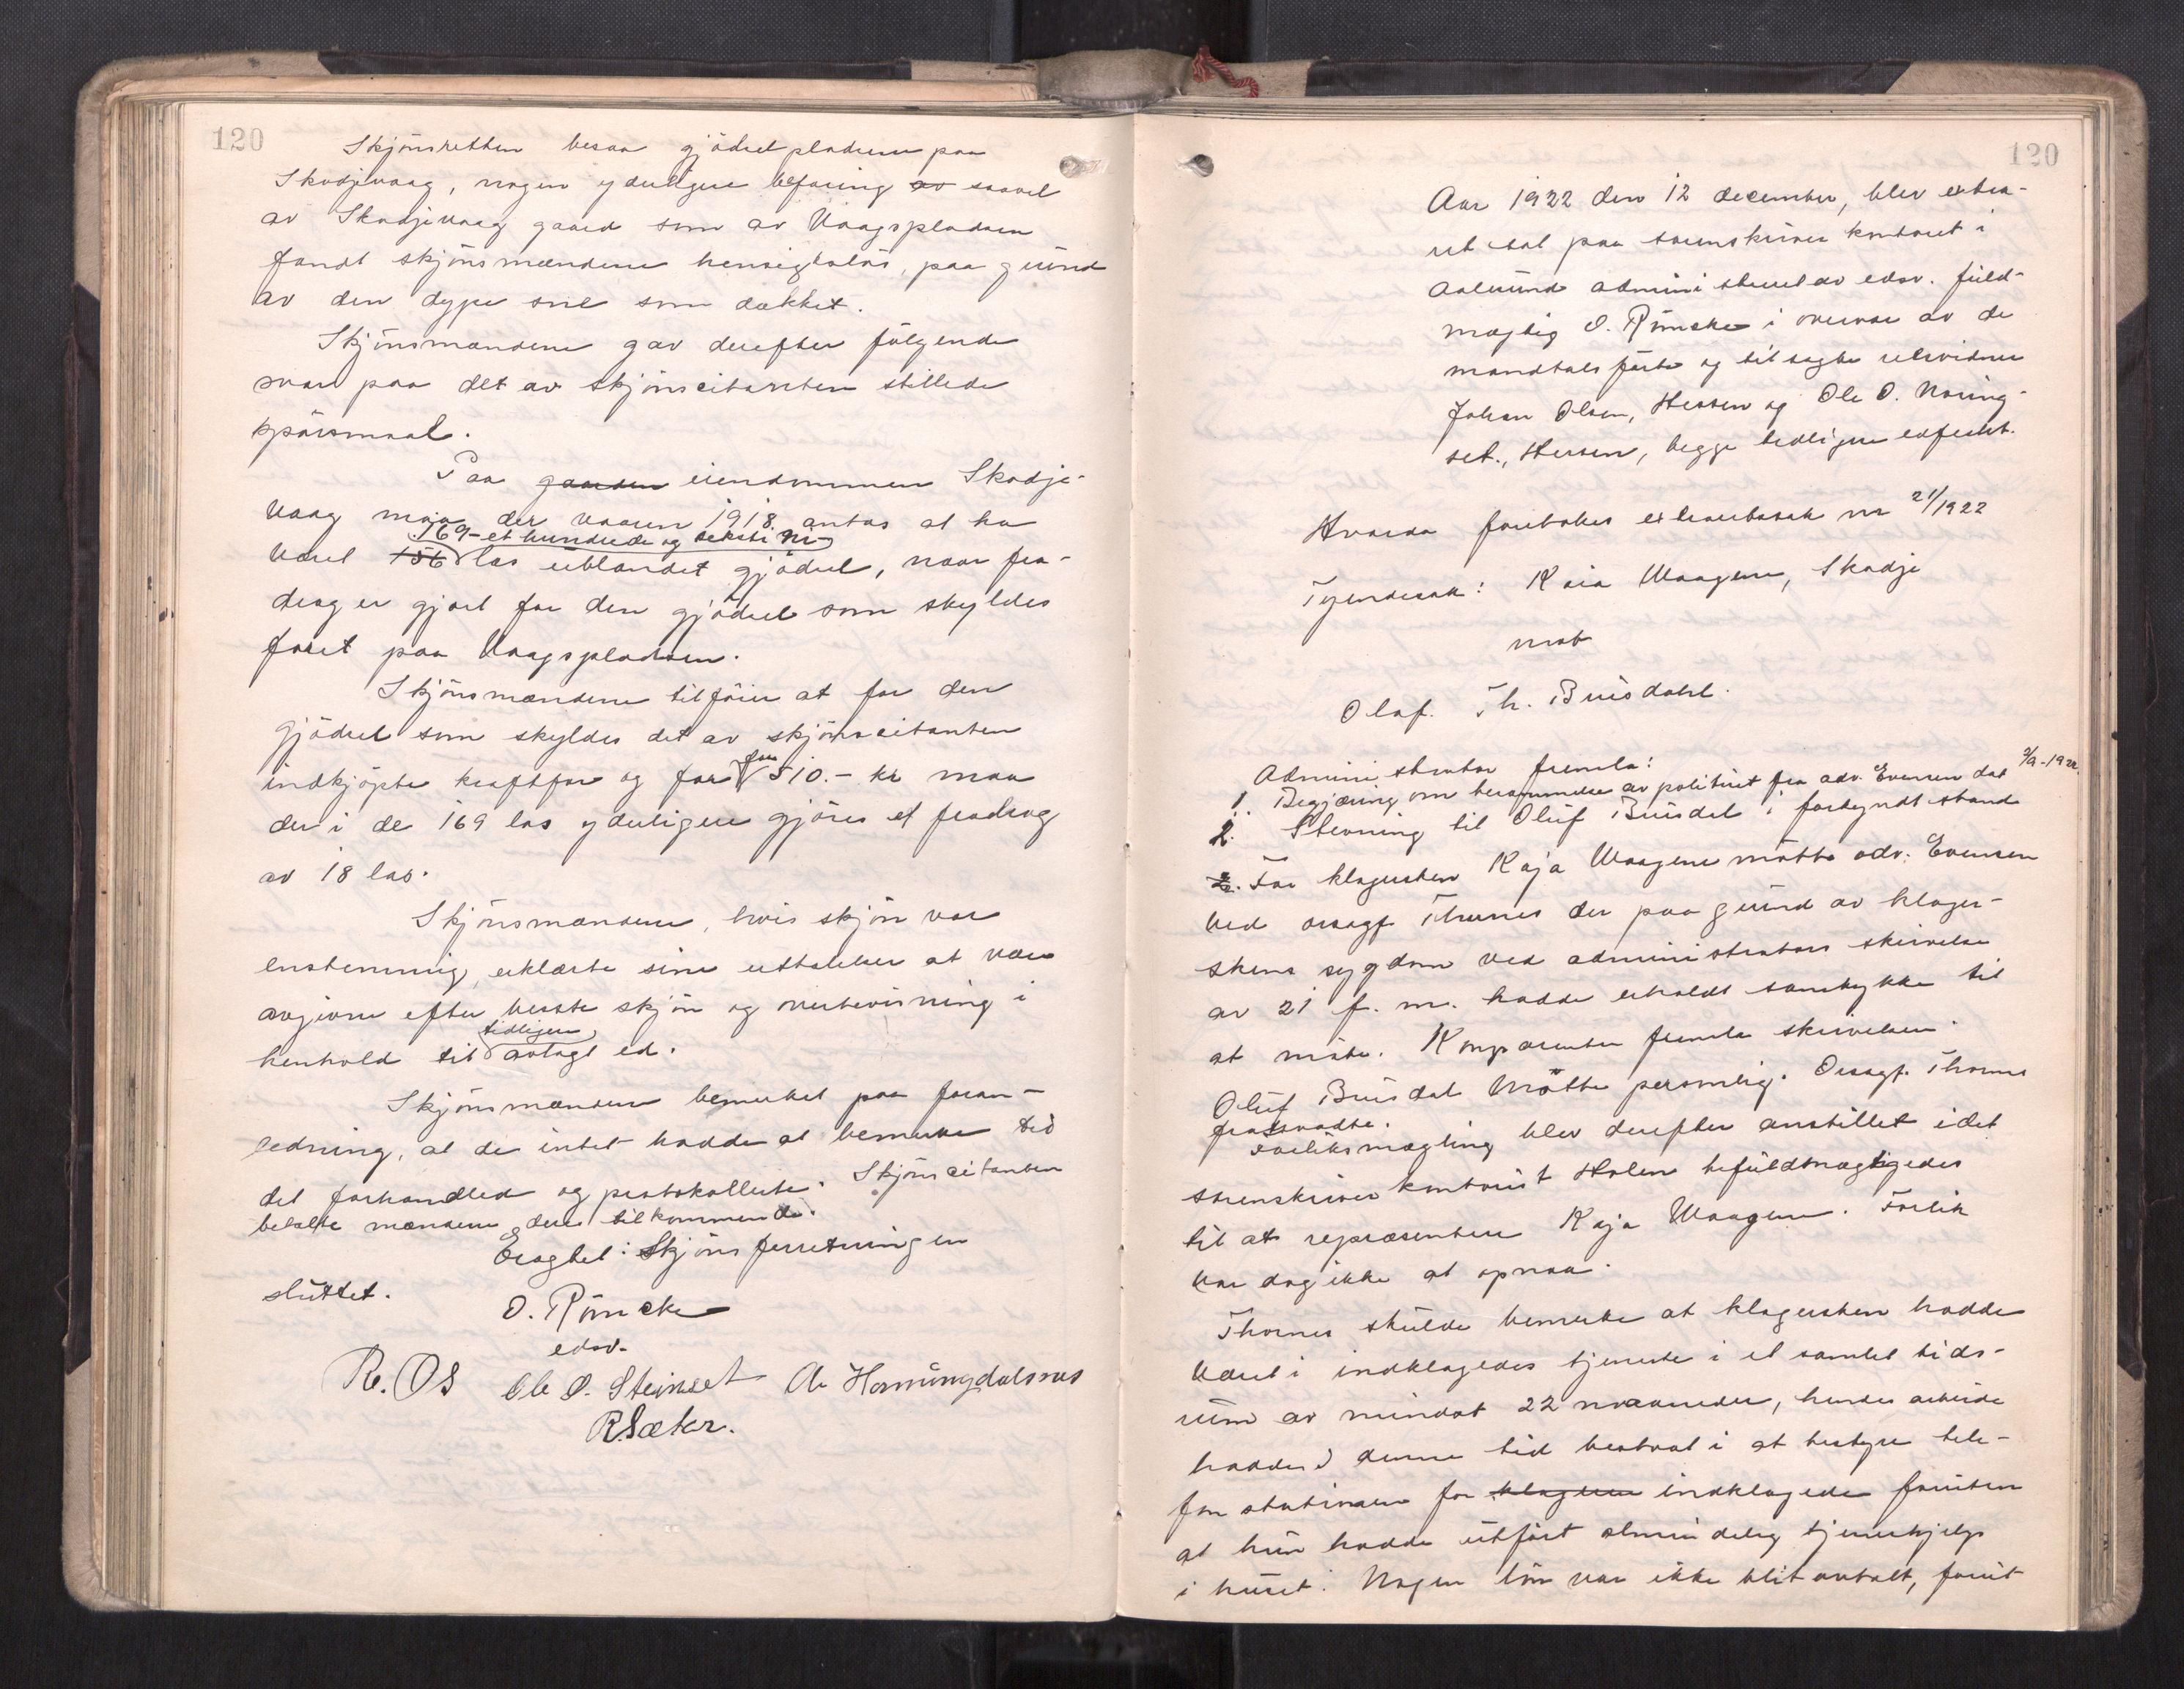 120
Skjönsretten besaa gjödselpladsene paa
Skodjevaag, nogen yderligere befaring av saavel
av Skodjevaag gaard som av Vaagspladsen
fandt skjönsmændene hensigtslös, paa grund
av den dype sne som dækket.
Skjönsmændene gav derefter fölgende
svar paa det av skjönscitanten stillede
spörsmaal.
Paa gaarden eiendommen Skodje-
vaag maa der vaaren 1918 antas at ha
169 - et hundrede og seksti ni -
været 156 las ublandet gjödsel, naar fra-
drag er gjort for den gjödsel som skyldes
foret paa Vaagspladsen.
Skjönsmændene tilföier at for den
gjödsel som skyldes det av skjönscitanten
indkjöpte kraftfor og for for 510.- kr maa
der i de 169 las yderligere gjöres et fradrag
av 18 las.
Skjönsmændene, hvis skjön var
enstemmig, erklærte sine uttalelser at være
avgivne efter beste skjön og overbevisning i
tidligere
henhold til avlagt ed.
Skjönsmændene bemerket paa foran-
ledning, at de intet hadde at bemerke ved
det forhandled og protokollerte. Skjönscitanten
betalte mændene deres tilkommende.
Eragtet: Skjönsforretningen
sluttet.
O. Römcke
edsv.
R. OS Ole O. Steinset A Hornungdalsnes
R. Sæter.
120
Aar 1922 den 12 december, blev extra-
ret sat paa sorenskriver kontoret i
Aalesund administreret av edsv. fuld-
mægtig O. Römcke i overvær av de
mandtalsförte og tilsagte retsvidner
Johan Olsen, Hessen og Ole O. Noring-
set, Hessen, begge tidligere edfæstet.
Hvorda foretokes extraretssak nr 21/1922
Tyendesak: Kaia Waagene, Skodje
mot
Olaf. Th. Busdahl.
Administrator fremla:
1. Begjæring om berammelse av politiret fra adv. Evensen dat 2/9-1922.
2. Stevning til Oluf Busdal i forkyndt stand
2. For klagersken Kaja Waagene mötte adv. Evensen
ved orsagf. Thornes der paa grund av klager-
skens sygdom ved administrators skrivelse
av 21 f. m. hadde erholdt samtykke til
at möte. Komparenten fremla skrivelsen.
Oluf Busdal mötte personlig. Orsagf. Thornes
frasvadte.
Forliksmægling blev derefter anstillet idet
sorenskriver kontorist Holen befuldmægtigedes
til at repræsentere Kaja Waagene. Forlik
var dog ikke at opnaa.
Thornes skulde bemerke at klagersken hadde
været i indklagedes tjeneste i et samlet tids-
rum av mindst 22 maaneder, hendes arbeide
hadde i denne tid bestaat i at bestyre tele-
fon stationen for klageren indklagede foruten
at hun hadde utfört almindelig tjenerhjelp
i huset. Nogen lön var ikke blit avtalt, forut